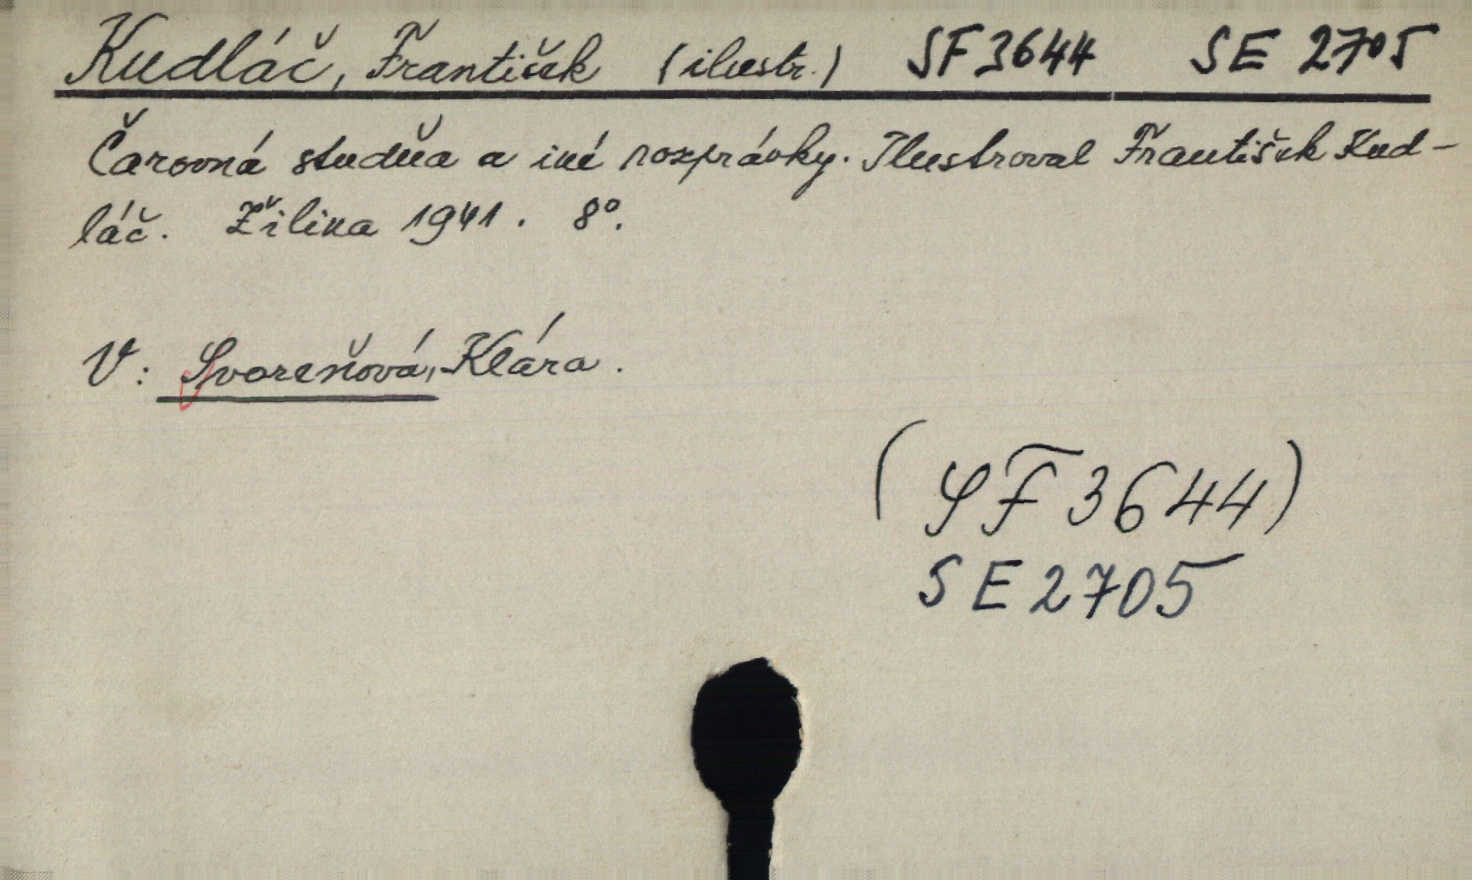 Kudláč, František (ilustr.) SF 3644 SE 2705
Čarovná studňa a iné rozprávky. Ilustroval František Kud-
láč. Žilina 1941. 8°.
V: Svoreňová, Klára.
(SF 3644)
SE 2705